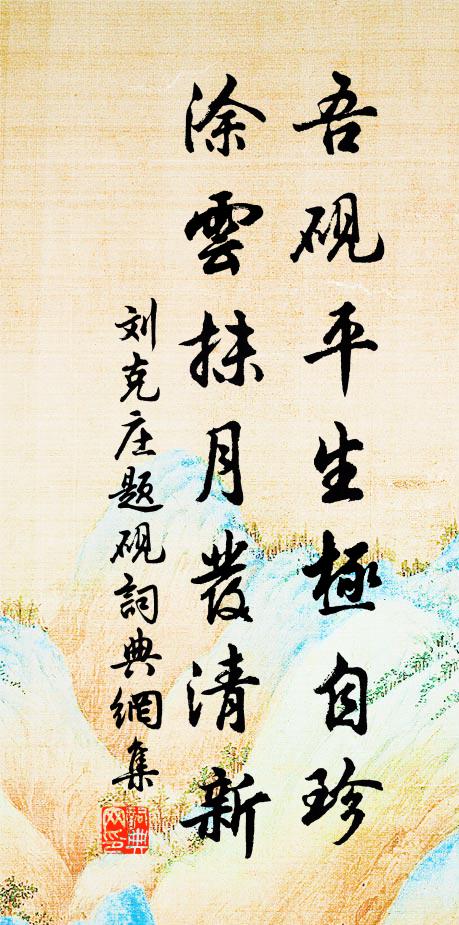 吾砚平生極自珍
涂雲抹月發清新
刘克庄题砚詞典網集
詞典网印